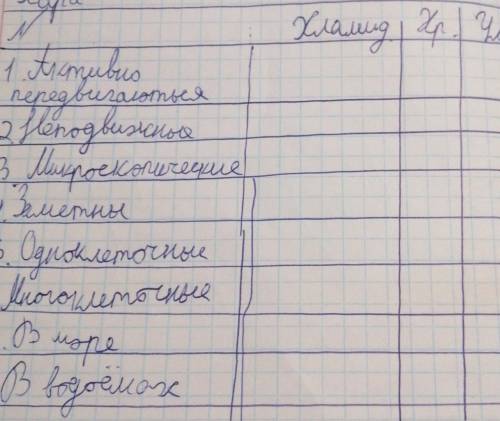 № Хламид. Хр. Ул
1. Активно
передвигаються
2 Неподвижные
3 Микроскопические
. Заметны
5. Одноклеточные
Многоклеточные
. В море
В водоёмах